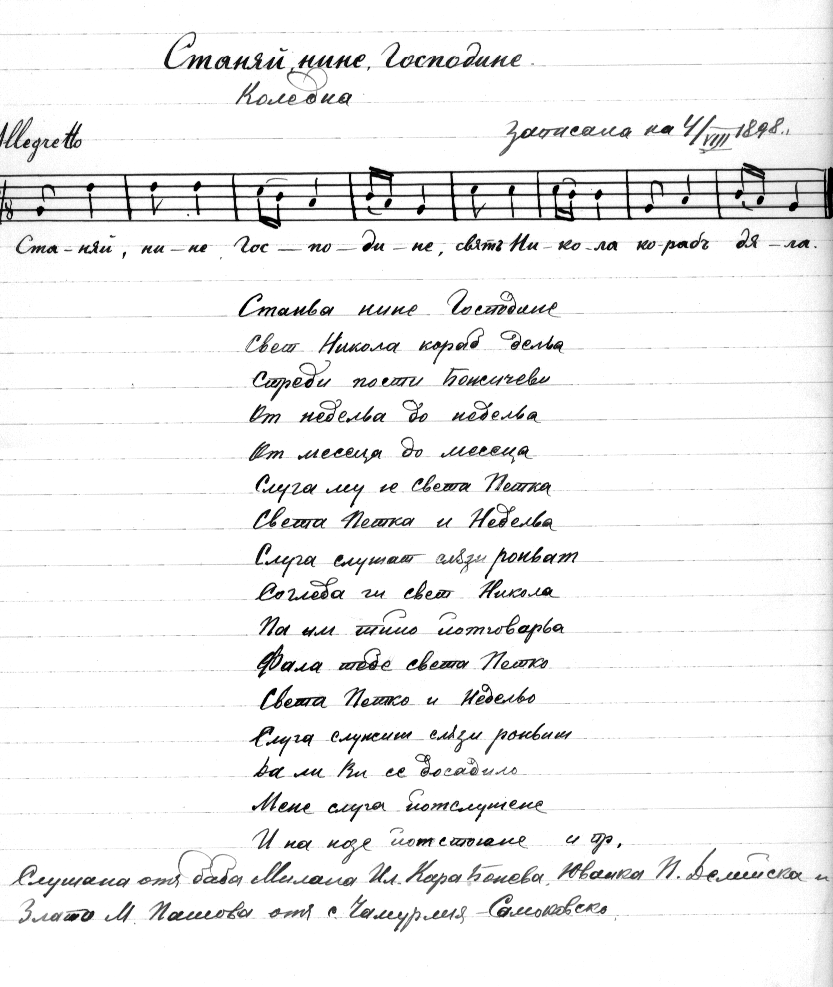 Станяй, нине, Господине.
Коледна
Записана на 4/VIII 1898.
Allegretto
Ста-няй, ни-не Гос-по-ди-не, святъ Ни-ко-ла ко-рабъ дя-ла.
Станьа нине Господине
Свет Никола кораб дельа
Стреди пости Божичеви
От недельа до недельа
От месеца до месеца
Слуга му је света Петка
Света Петка и Недельа
Слуга слушат слѫзи роньат
Согледа ги свет Никола
Па им тийо йотговарьа
Фала тебе света Петко
Света Петко и Недельо
Слуга служит слѫзи роньит
Да ли Ви се досадило
Мене слуга йотслушене
И на нозе йотстојане и пр.
Слушана отъ баба Милана Ил. Кара Бонева, Юванка П. Делийска и
Злата М. Пашова отъ с. Чамурлия - Самоковско.